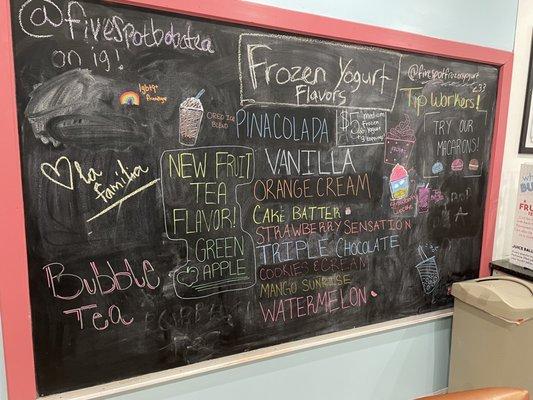 @fivespotbobatea
on ig!
lgbtq+
OREO ICE
BLEND
la
familia
NEW FRUIT
TEA
FLAVOR!
GREEN
APPLE
BUBBLE
TEA
Frozen Yogurt
Flavors
$5 medium
frozen
yogurt
PINACOLADA
VANILLA
ORANGE CREAM
CAKE BATTER
STRAWBERRY SENSATION
TRIPLE CHOCOLATE
COOKIES & CREAM
MANGO SUNRISE
WATERMELON
@fivespotfrozenyogurt
Top Workers!
TRY OUR
MACARONS!